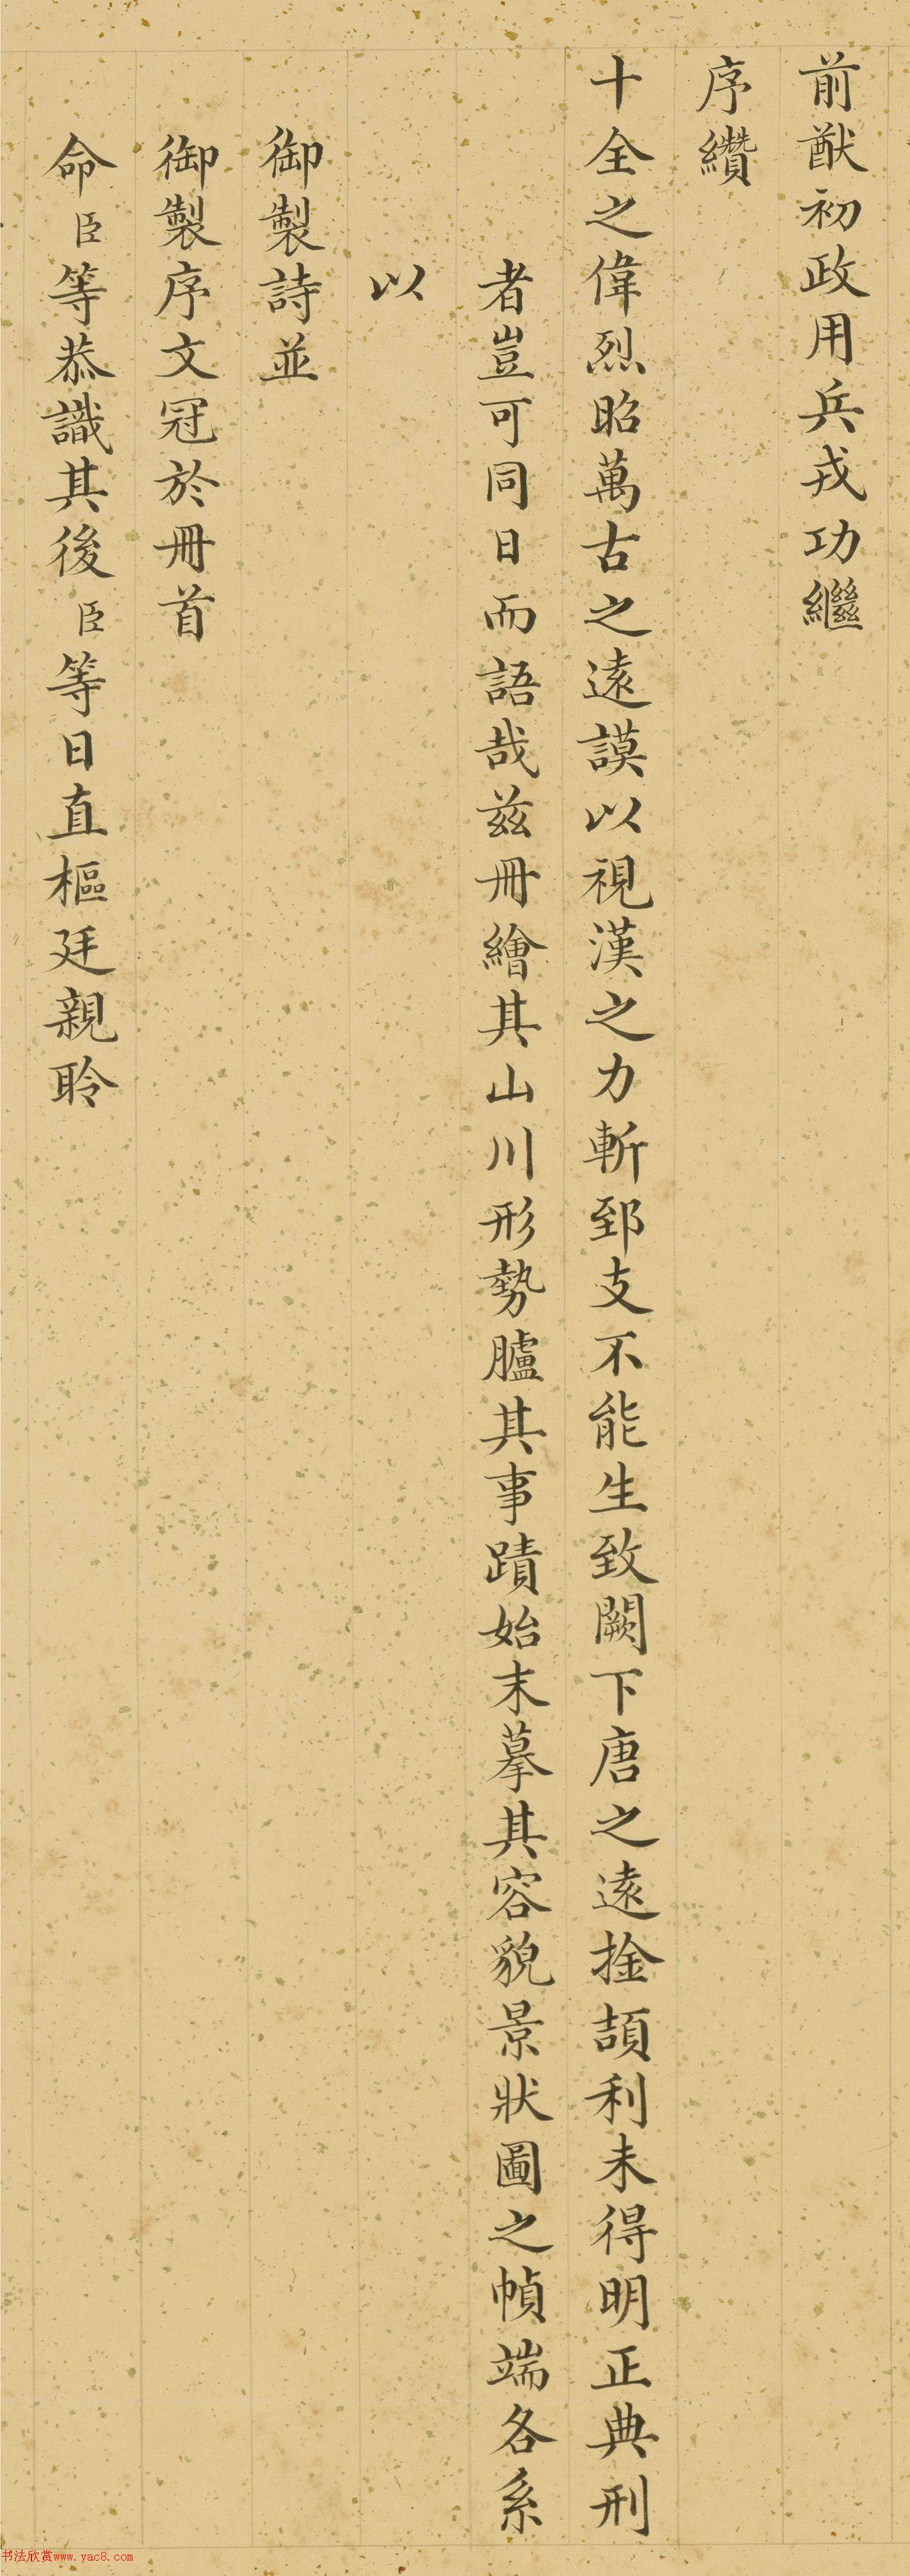 前猷初政用兵戎功繼
序纘
十全之偉烈昭萬古之遠謨以視漢之力斬郅支不能生致闕下唐之遠捦頡利未得明正典刑
者豈可同日而語哉茲冊繪其山川形勢臚其事蹟始末摹其容貌景狀圖之幀端各系
以
御製詩並
御製序文冠於冊首
命臣等恭識其後臣等日直樞廷親聆
书法欣赏www.yac8.com